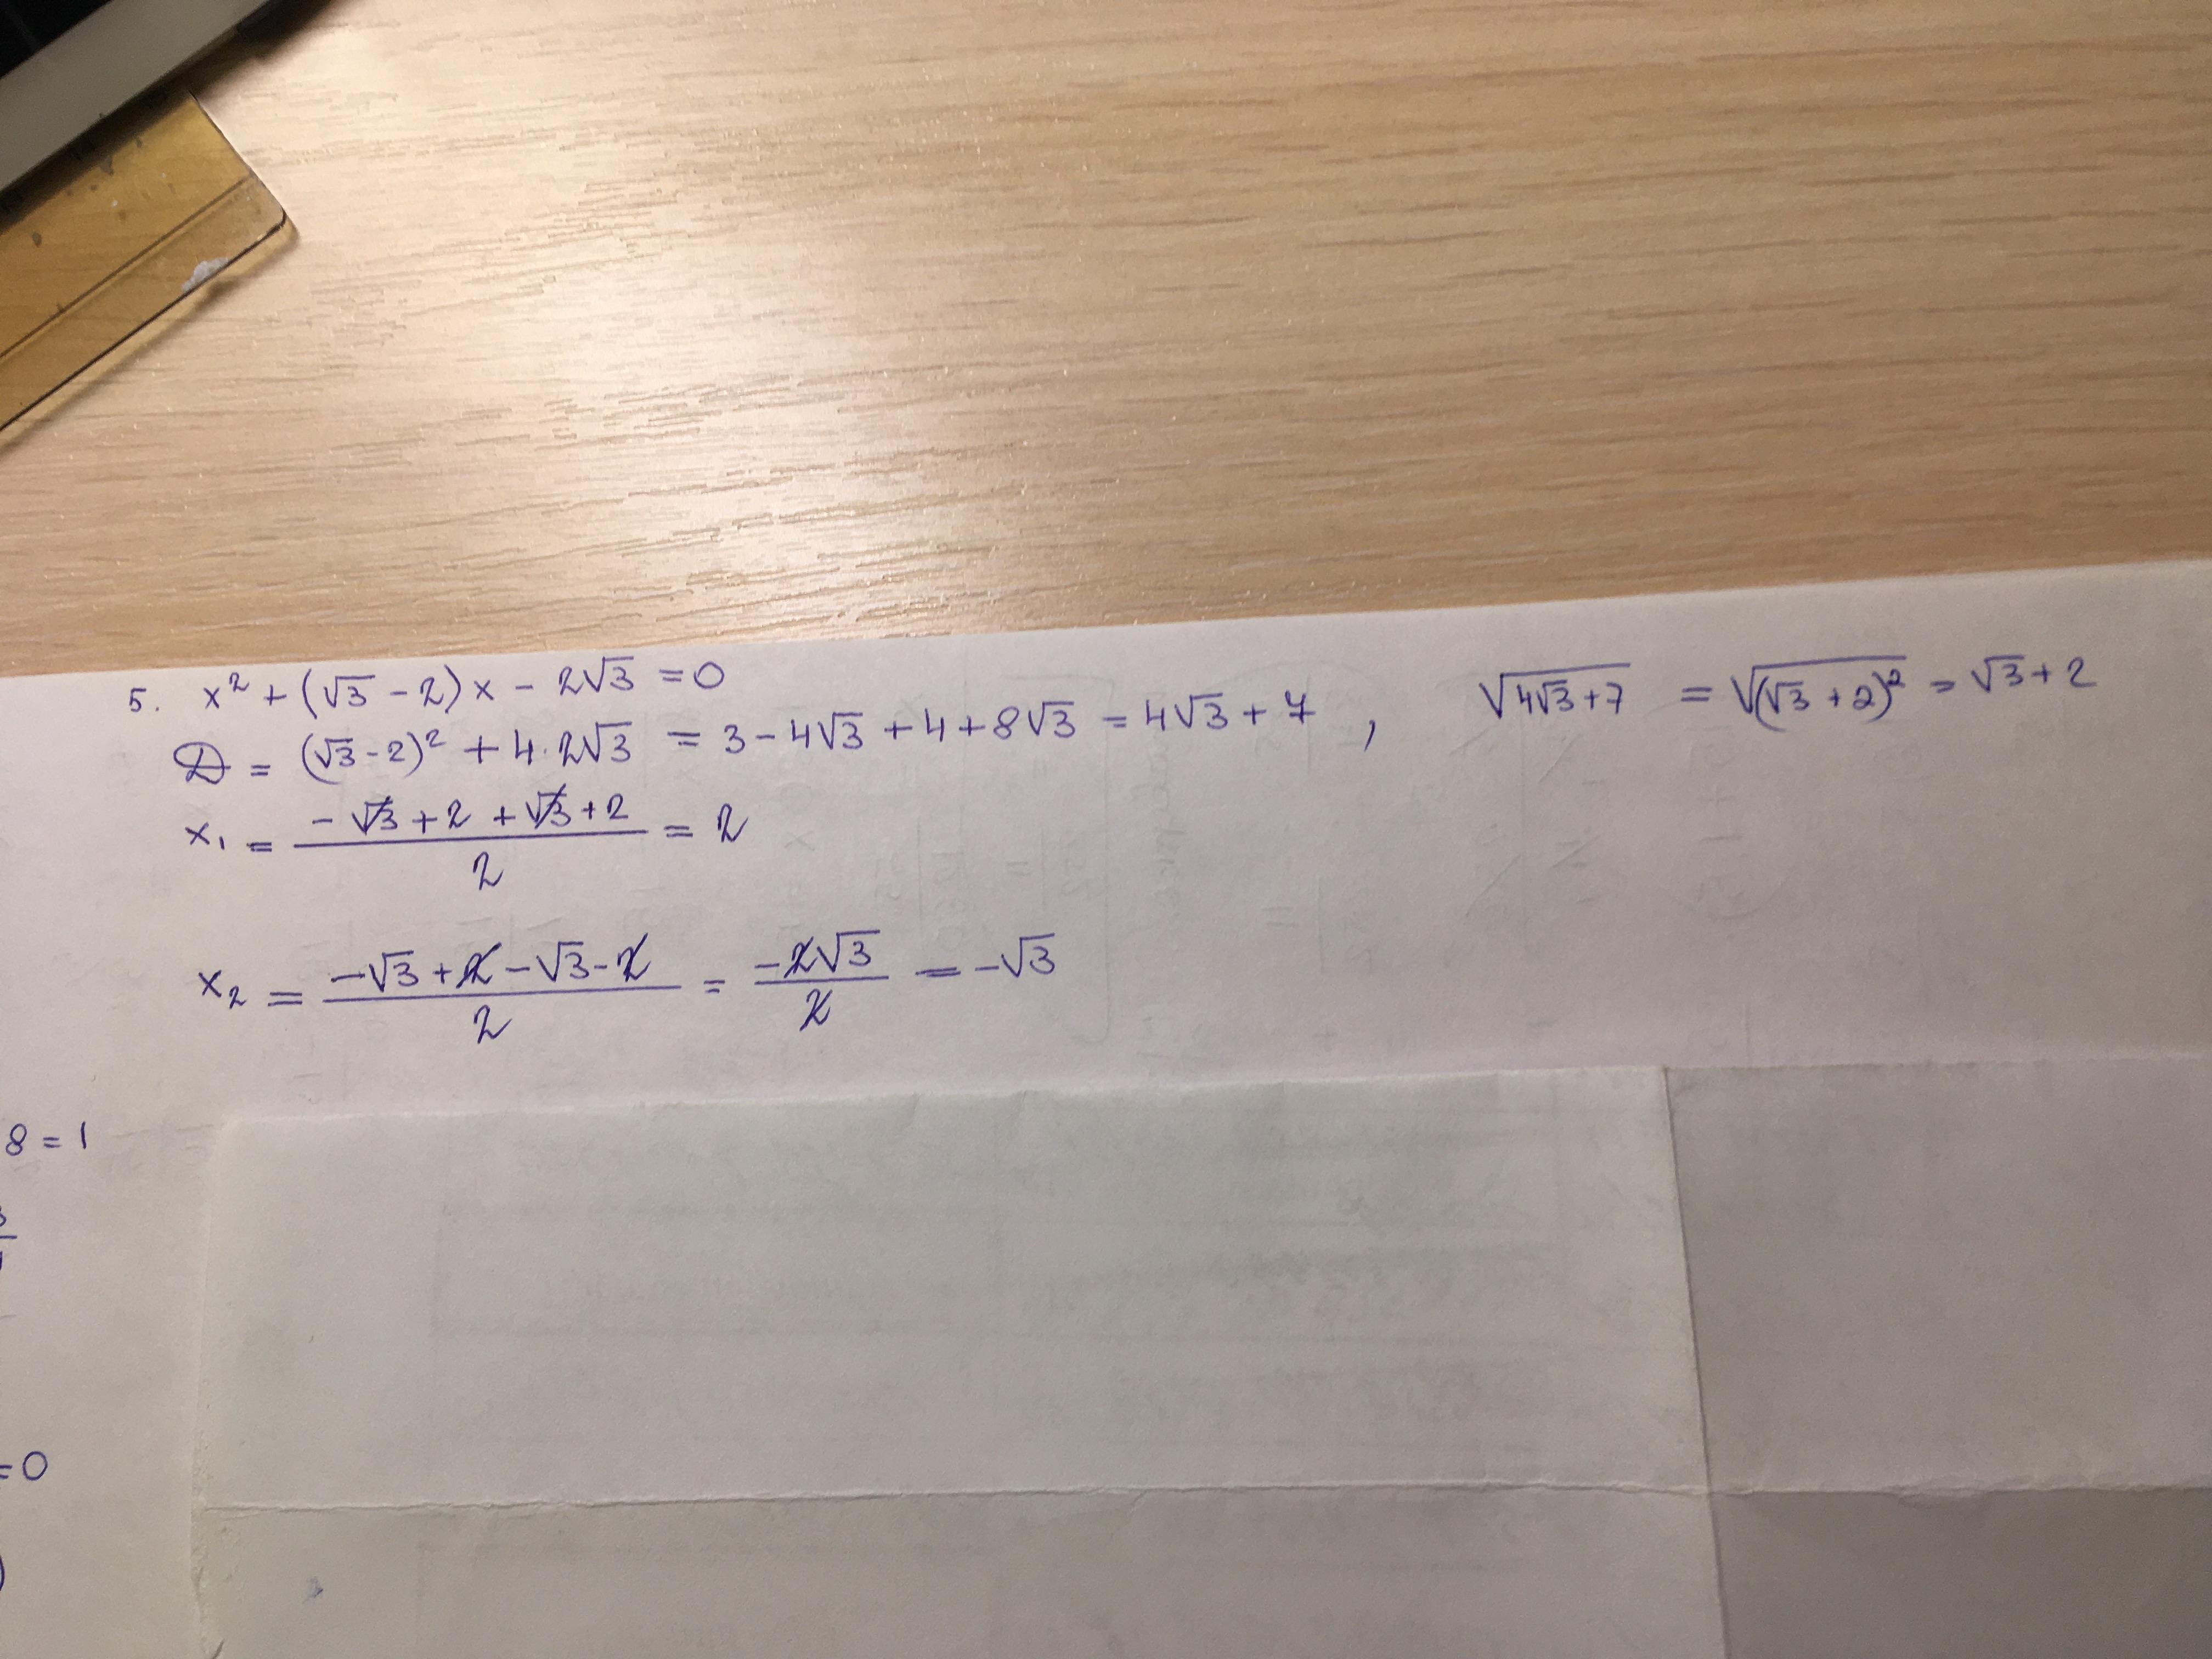 5. x² + (√3 - 2)x - 2√3 = 0
D = (√3 - 2)² + 4·2√3 = 3 - 4√3 + 4 + 8√3 = 4√3 + 7 , √(4√3 + 7) = √((√3 + 2)²) = √3 + 2
x₁ = (-√3 + 2 + √3 + 2)/2 = 2
x₂ = (-√3 + 2 - √3 - 2)/2 = (-2√3)/2 = -√3
8 = 1
= 0